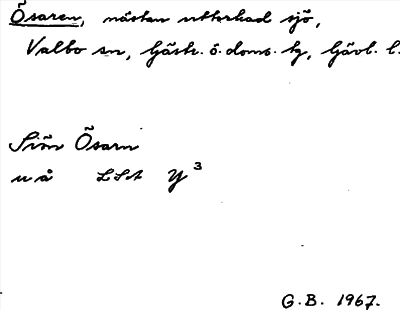 Ösaren, nästan uttorkad sjö,
Valbo sn, Gästr. ö. doms. hg, Gävl. l.
Siön Ösarn
u å LSA Y³
G.B. 1967.